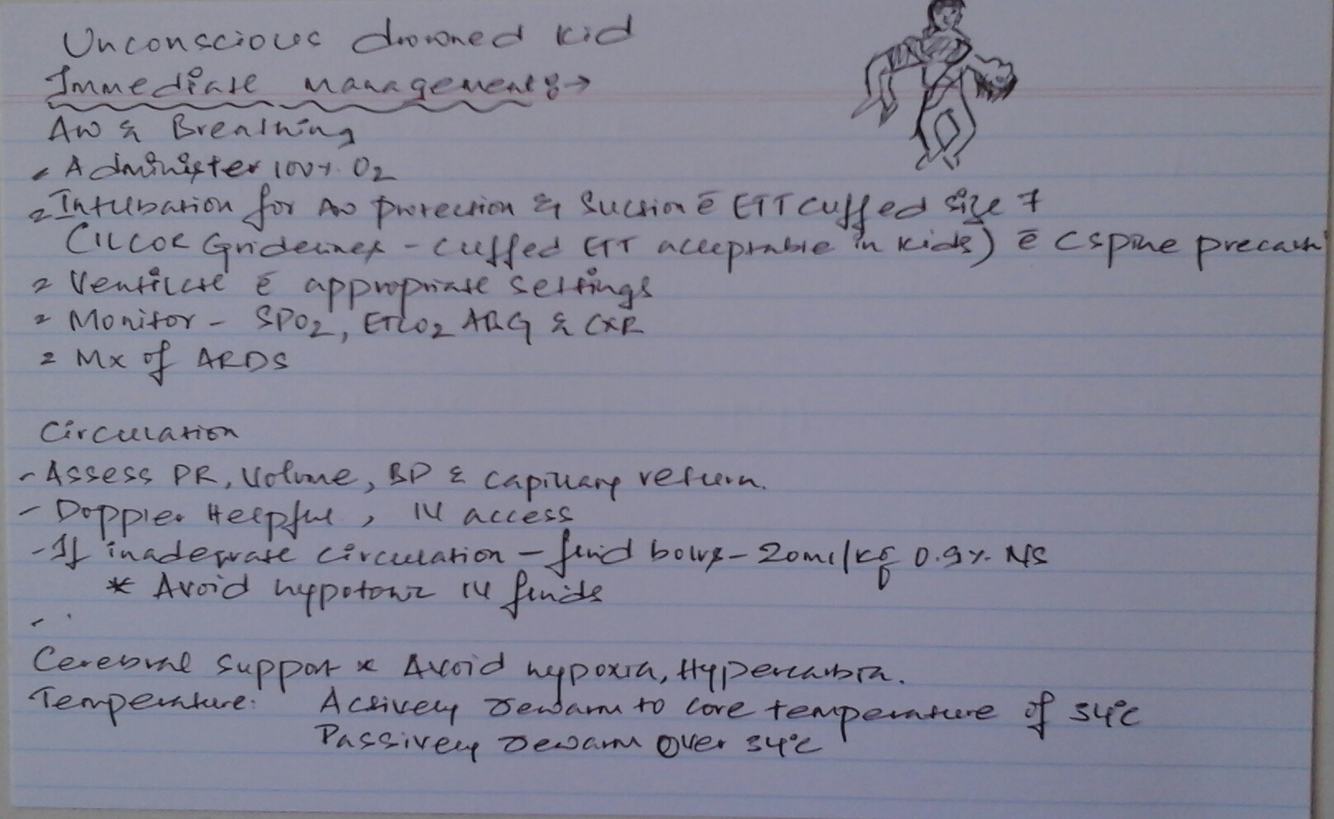 Unconscious drowned kid
Immediate management:→
AW & Breathing
- Administer 100% O2
- Intubation for AW protection & Suction c̄ ETT cuffed size 7
(ILCOR Guidelines - cuffed ETT acceptable in kids) c̄ C spine precautn
- Ventilate c̄ appropriate settings
- Monitor - SPO2, ETCO2 ABG & CXR
- Mx of ARDS
Circulation
- Assess PR, Volume, BP & capillary return.
- Doppler Helpful, IV access
- If inadequate circulation - fluid bolus - 20ml/kg 0.9% NS
* Avoid hypotonic IV fluids
Cerebral support * Avoid hypoxia, Hypercarbia.
Temperature: Actively rewarm to core temperature of 34°C
Passively rewarm over 34°C